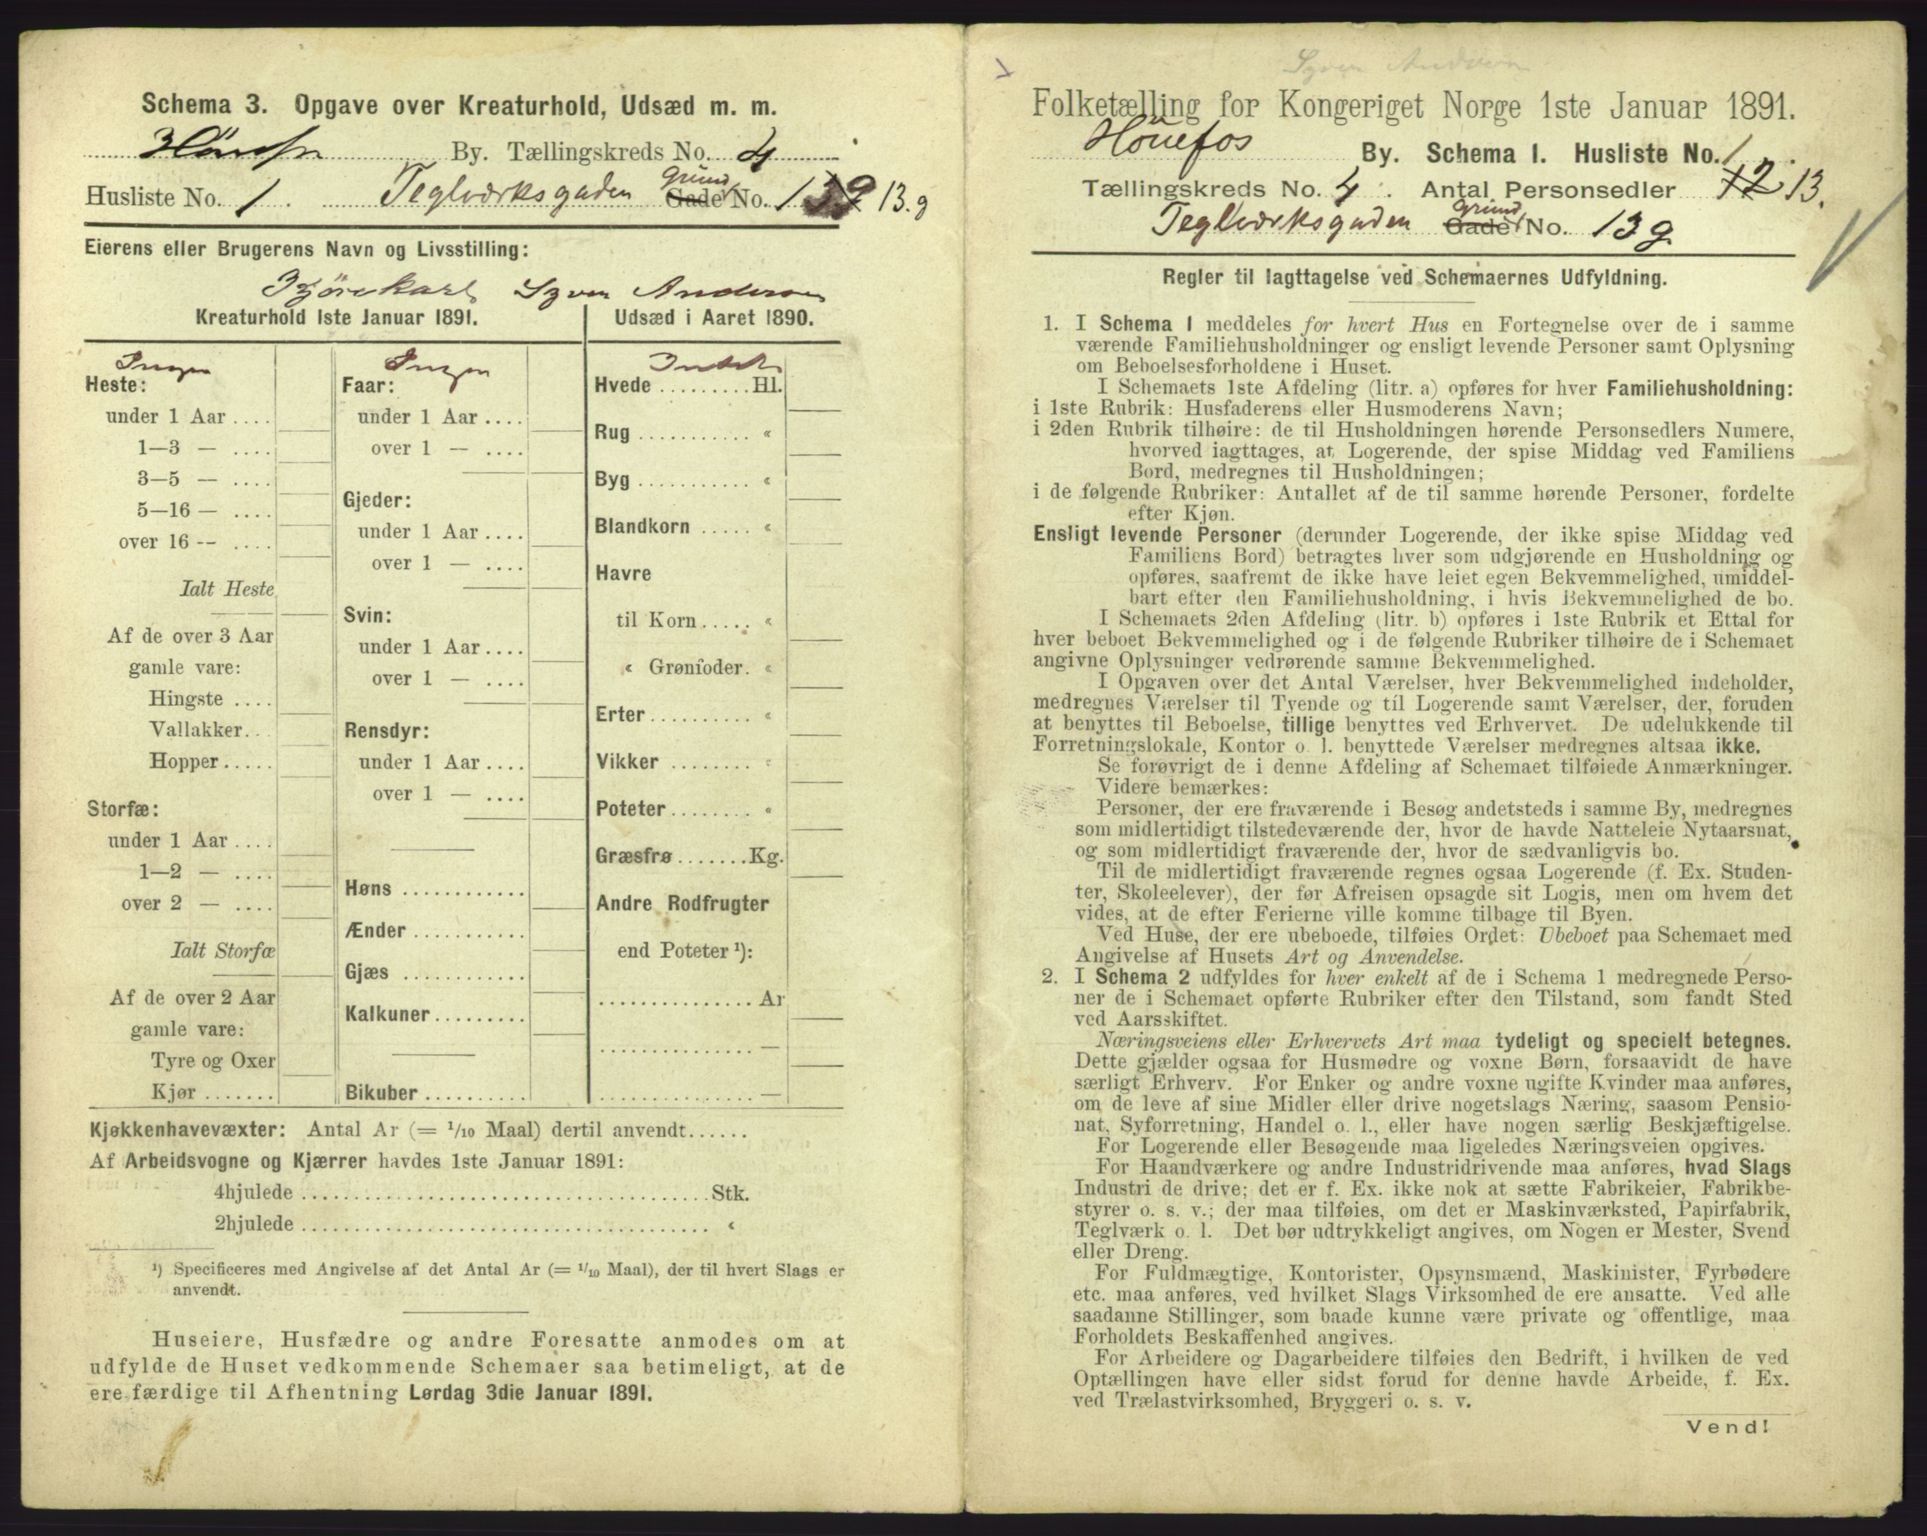 Schema 3. Opgave over Kreaturhold, Udsæd m. m.
Hönefos By. Tællingskreds No. 4
Husliste No. 1. Teglværksgaden Gade Grund No. 13 g 13. g
Eierens eller Brugerens Navn og Livsstilling:
Kjörekarl Syver Andersen
Kreaturhold 1ste Januar 1891.
Ingen
Heste:
under 1 Aar ....
1—3 — ....
3—5 — ....
5—16 — ....
over 16 -- ....
Ialt Heste
Af de over 3 Aar
gamle vare:
Hingste ....
Vallakker...
Hopper.....
Storfæ:
under 1 Aar ....
1—2 — ....
over 2 — ....
Ialt Storfæ
Af de over 2 Aar
gamle vare:
Tyre og Oxer
Kjør .......
Ingen
Faar:
under 1 Aar ....
over 1 — ....
Gjeder:
under 1 Aar ....
over 1 — ....
Svin:
under 1 Aar ....
over 1 — ....
Rensdyr:
under 1 Aar ....
over 1 — ....
Høns ............
Ænder ...........
Gjæs ............
Kalkuner.........
Bikuber ..........
Udsæd i Aaret 1890.
Hvede .........Hl.
Rug ........... «
Byg ........... «
Blandkorn ..... «
Havre
til Korn..... «
« Grønfoder. «
Erter.......... «
Vikker ........ «
Poteter........ «
Græsfrø.......Kg.
Andre Rodfrugter
end Poteter ¹):
................ Ar
................ —
................ —
Kjøkkenhavevæxter: Antal Ar (= 1/10 Maal) dertil anvendt......
Af Arbeidsvogne og Kjærrer havdes 1ste Januar 1891:
4hjulede ........................................Stk.
2hjulede ........................................ «
¹) Specificeres med Angivelse af det Antal Ar (= 1/10 Maal), der til hvert Slags er
anvendt.
Huseiere, Husfædre og andre Foresatte anmodes om at
udfylde de Huset vedkommende Schemaer saa betimeligt, at de
ere færdige til Afhentning Lørdag 3die Januar 1891.
Syver Andersen
Folketælling for Kongeriget Norge 1ste Januar 1891.
Hönefos By. Schema 1. Husliste No. 1.
Tællingskreds No. 4. Antal Personsedler 12 13.
Teglværksgaden Gade Grund No. 13 g
Regler til Iagttagelse ved Schemaernes Udfyldning.
1. I Schema 1 meddeles for hvert Hus en Fortegnelse over de i samme
værende Familiehusholdninger og ensligt levende Personer samt Oplysning
om Beboelsesforholdene i Huset.
I Schemaets 1ste Afdeling (litr. a) opføres for hver Familiehusholdning:
i 1ste Rubrik: Husfaderens eller Husmoderens Navn;
i 2den Rubrik tilhøire: de til Husholdningen hørende Personsedlers Numere,
hvorved iagttages, at Logerende, der spise Middag ved Familiens
Bord, medregnes til Husholdningen;
i de følgende Rubriker: Antallet af de til samme hørende Personer, fordelte
efter Kjøn.
Ensligt levende Personer (derunder Logerende, der ikke spise Middag ved
Familiens Bord) betragtes hver som udgjørende en Husholdning og
opføres, saafremt de ikke have leiet egen Bekvemmelighed, umiddel-
bart efter den Familiehusholdning, i hvis Bekvemmelighed de bo.
I Schemaets 2den Afdeling (litr. b) opføres i 1ste Rubrik et Ettal for
hver beboet Bekvemmelighed og i de følgende Rubriker tilhøire de i Schemaet
angivne Oplysninger vedrørende samme Bekvemmelighed.
I Opgaven over det Antal Værelser, hver Bekvemmelighed indeholder,
medregnes Værelser til Tyende og til Logerende samt Værelser, der, foruden
at benyttes til Beboelse, tillige benyttes ved Erhvervet. De udelukkende til
Forretningslokale, Kontor o. l. benyttede Værelser medregnes altsaa ikke.
Se forøvrigt de i denne Afdeling af Schemaet tilføiede Anmærkninger.
Videre bemærkes:
Personer, der ere fraværende i Besøg andetsteds i samme By, medregnes
som midlertidigt tilstedeværende der, hvor de havde Natteleie Nytaarsnat,
og som midlertidigt fraværende der, hvor de sædvanligvis bo.
Til de midlertidigt fraværende regnes ogsaa Logerende (f. Ex. Studen-
ter, Skoleelever), der før Afreisen opsagde sit Logis, men om hvem det
vides, at de efter Ferierne ville komme tilbage til Byen.
Ved Huse, der ere ubeboede, tilføies Ordet: Ubeboet paa Schemaet med
Angivelse af Husets Art og Anvendelse.
2. I Schema 2 udfyldes for hver enkelt af de i Schema 1 medregnede Perso-
ner de i Schemaet opførte Rubriker efter den Tilstand, som fandt Sted
ved Aarsskiftet.
Næringsveiens eller Erhvervets Art maa tydeligt og specielt betegnes.
Dette gjælder ogsaa for Husmødre og voxne Børn, forsaavidt de have
særligt Erhverv. For Enker og andre voxne ugifte Kvinder maa anføres,
om de leve af sine Midler eller drive nogetslags Næring, saasom Pensio-
nat, Syforretning, Handel o. l., eller have nogen særlig Beskjæftigelse.
For Logerende eller Besøgende maa ligeledes Næringsveien opgives.
For Haandværkere og andre Industridrivende maa anføres, hvad Slags
Industri de drive; det er f. Ex. ikke nok at sætte Fabrikeier, Fabrikbe-
styrer o. s. v.; der maa tilføies, om det er Maskinværksted, Papirfabrik,
Teglværk o. l. Det bør udtrykkeligt angives, om Nogen er Mester, Svend
eller Dreng.
For Fuldmægtige, Kontorister, Opsynsmænd, Maskinister, Fyrbødere
etc. maa anføres, ved hvilket Slags Virksomhed de ere ansatte. Ved alle
saadanne Stillinger, som baade kunne være private og offentlige, maa
Forholdets Beskaffenhed angives.
For Arbeidere og Dagarbeidere tilføies den Bedrift, i hvilken de ved
Optællingen have eller sidst forud for denne havde Arbeide, f. Ex.
ved Trælastvirksomhed, Bryggeri o. s. v.
Vend!